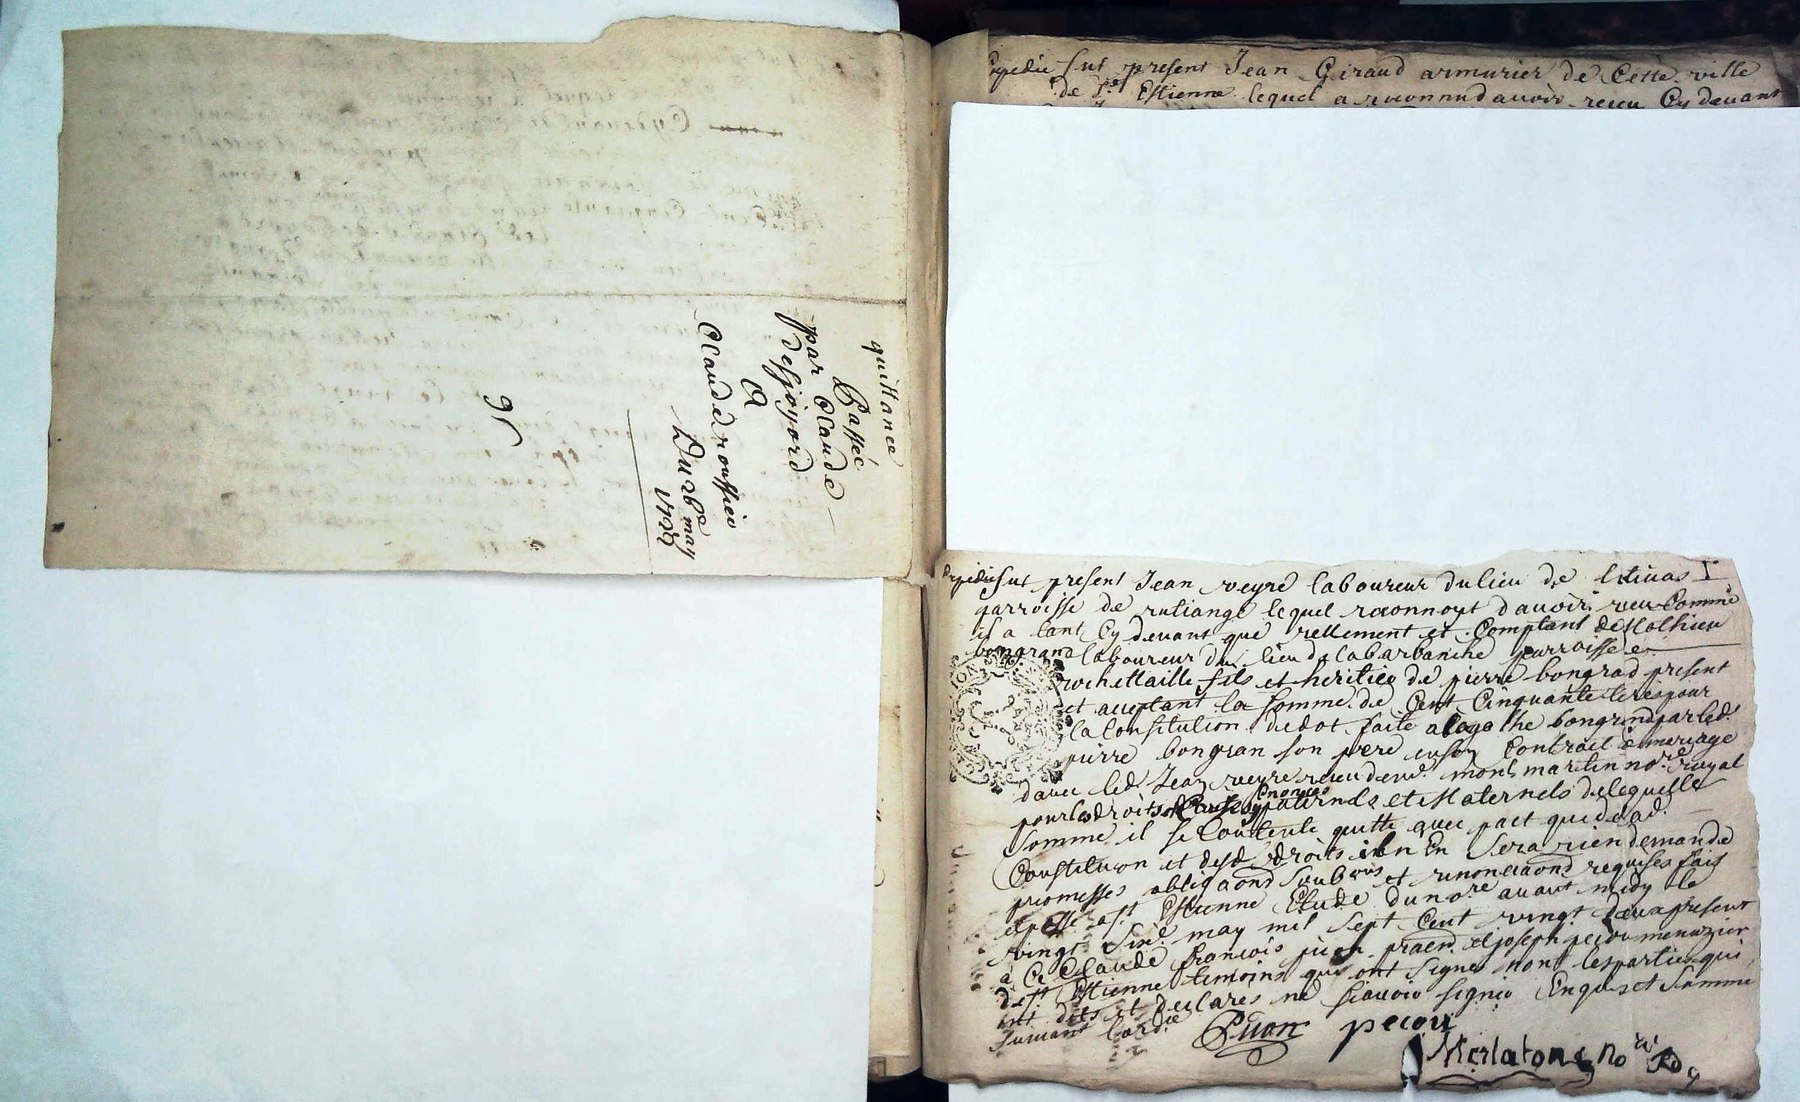 quittance
Passée
par Claude
desjoyord
A
Claude roussier
Du 26e may
1722
95
Expedie fut present Jean Giraud armurier de Cette ville
de St Estienne lequel a reconnud avoir receu Cy devant
Expedie fut present Jean veyre laboureur du lieu de
parroisse de lequel reconnoyt d'avoir receu Comme
il a tant Cy devant que rellement et Comptant de Mathieu
bongrand laboureur du lieu de labarbanche parroisse de
rochettaille fils et heritier de pierre bongrad present
et aceptant la somme de Cent Cinquante livres pour
la Constitution de dot faite a agathe bongrand par led.
pierre bongran son pere en son Contrait de mariage
avec led Jean veyre receu de me montmartin nore royal
pour les droits paternels et Maternels de lequelle
Somme il se Contente quitte avec pact que de lad.
Constitution et desd droits il n En Sera rien demande
promesses obligaons Soubons et renonciaons requises fait
et passé a St Estienne Etude du nore avant midy le
vingt sixe may mil Sept Cent vingt deux present
à Ce Claude francois puon praen et joseph pecou menuzier
de St Estienne temoins qui ont signe non les parties qui
ont dits et declares ne sçavoir signer Enquis et Somme
suivant lordce
Puon pecou
Merlaton, nore Roy